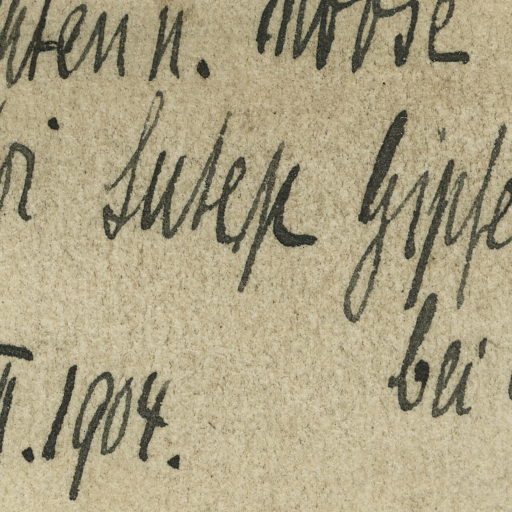 hten u. Moose
oi Sutep Gipfe
bei
II. 1904.